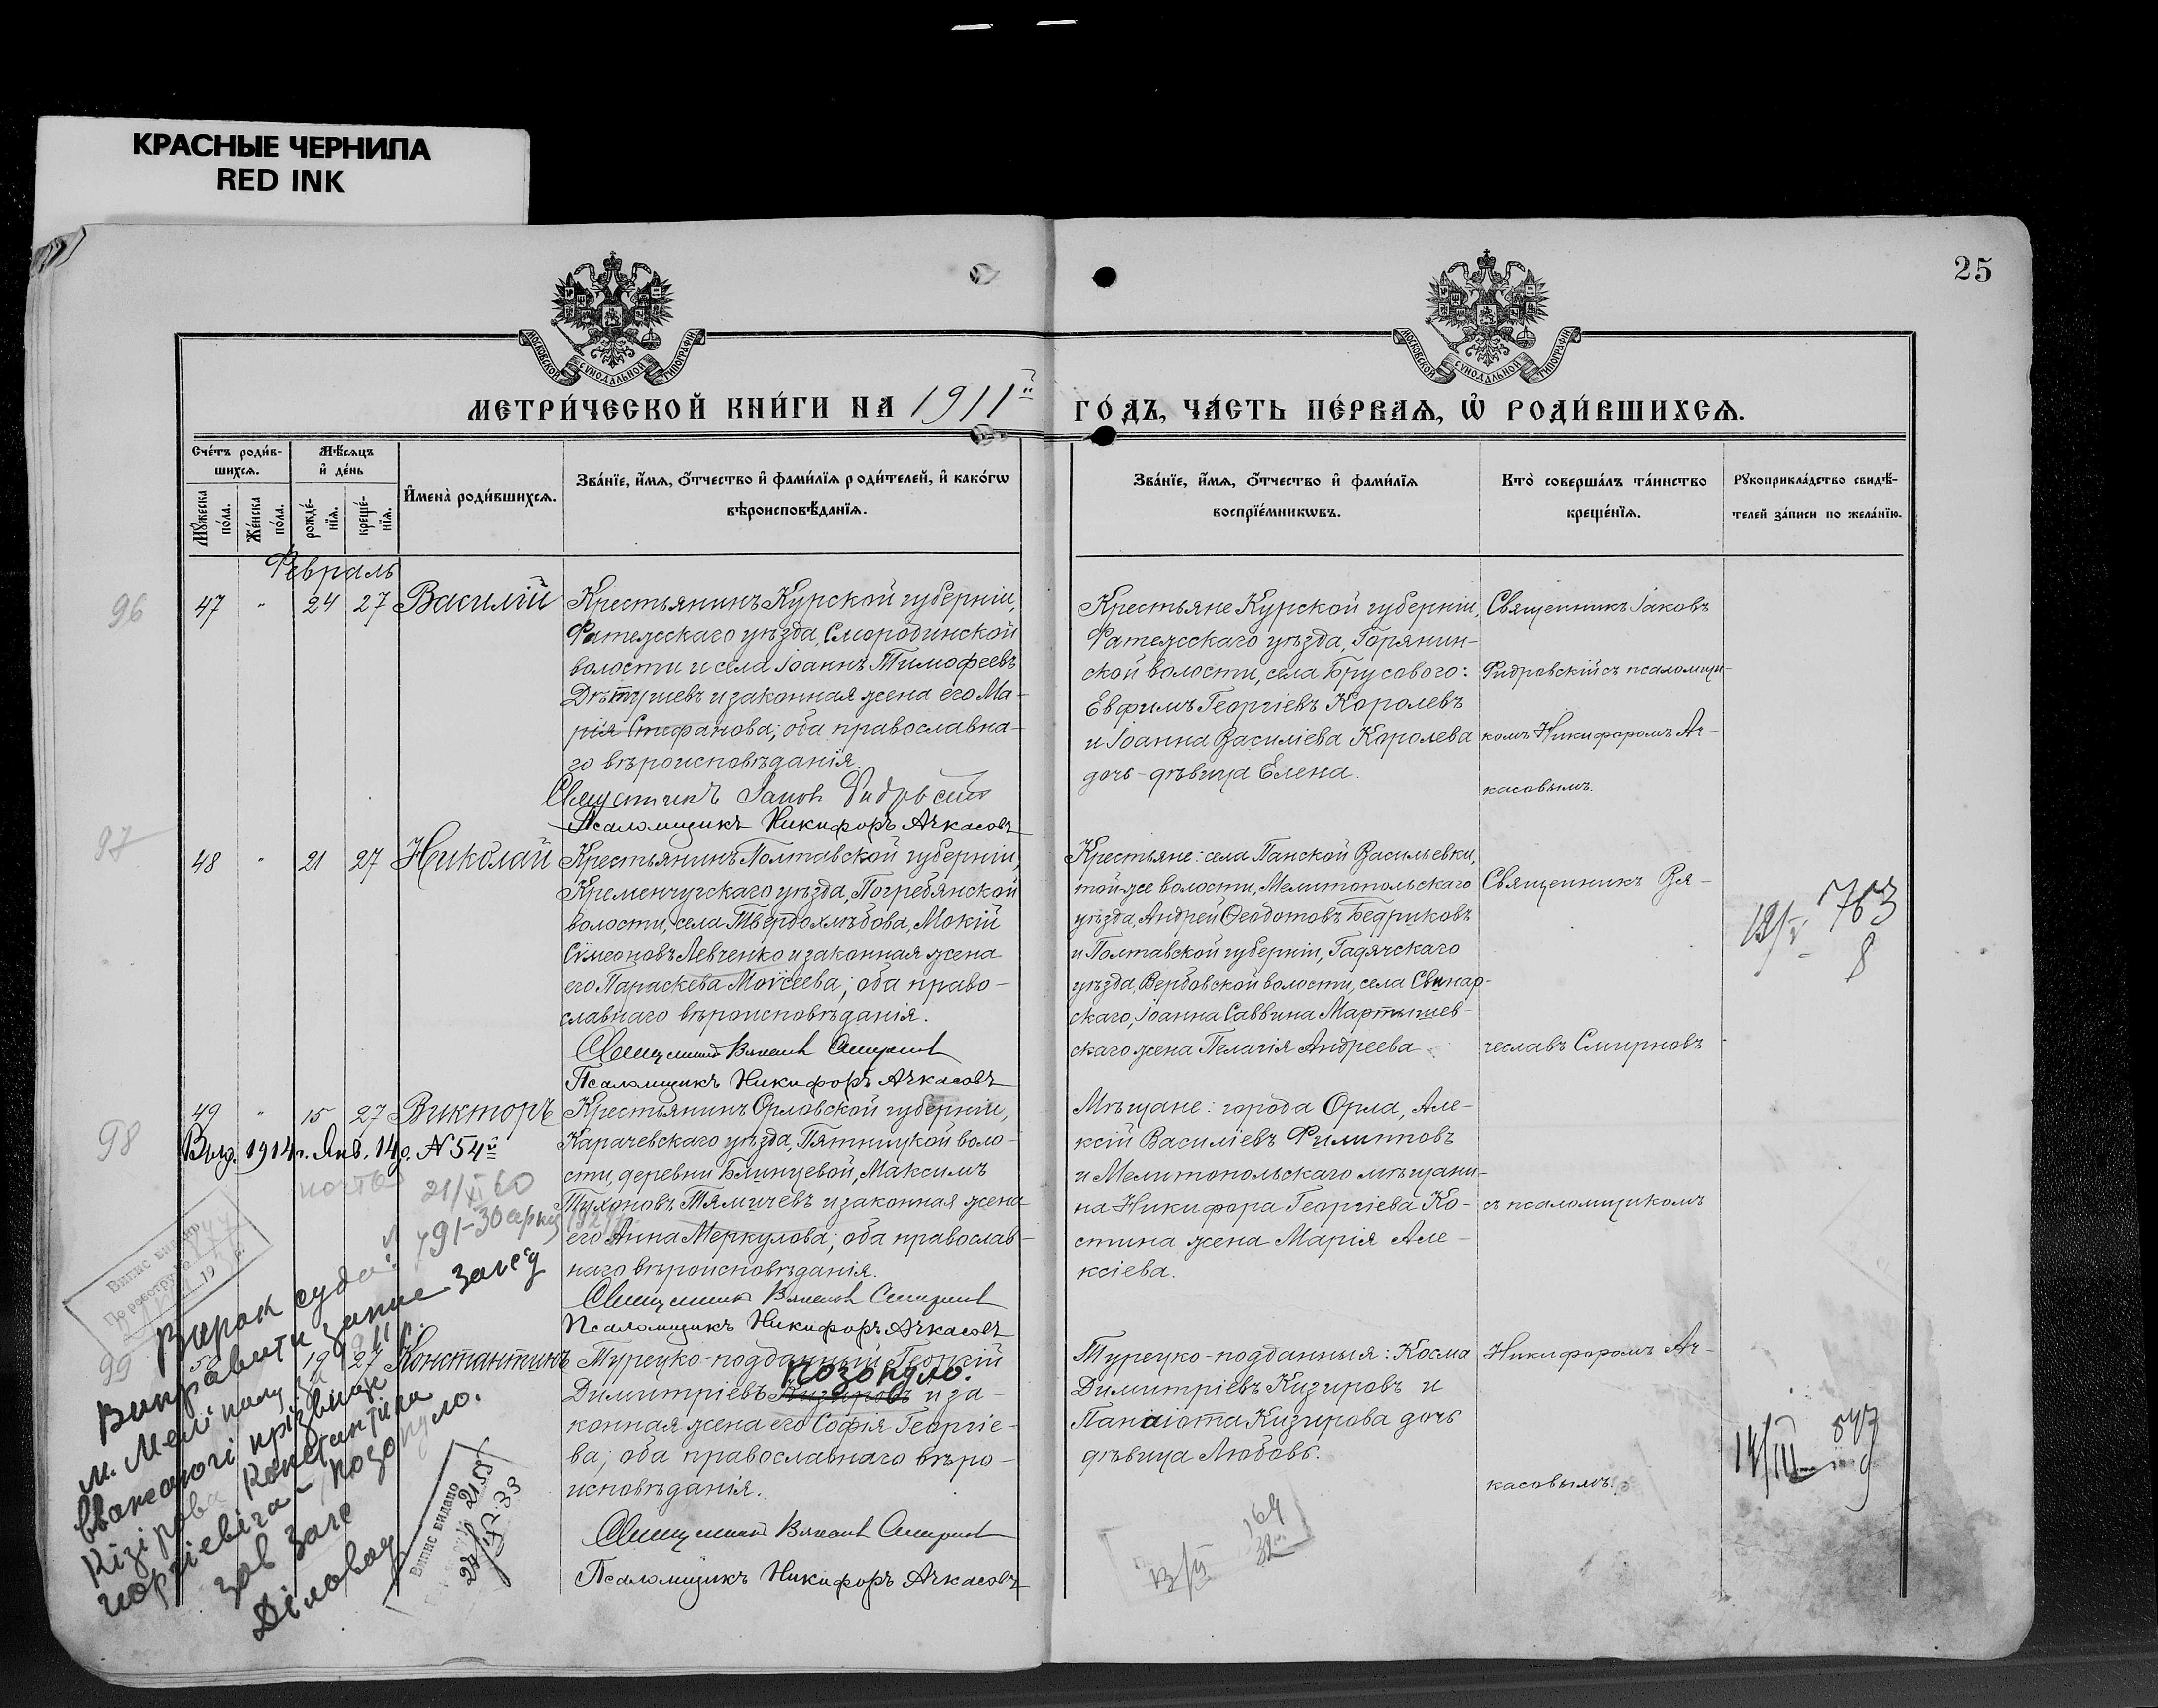 КРАСНЫЕ ЧЕРНИЛА
RED INK
25
МОСКОВСКОЙ СѴНОДАЛЬНОЙ ТИПОГРАФІИ
МОСКОВСКОЙ СѴНОДАЛЬНОЙ ТИПОГРАФІИ
МЕТРИ́ЧЕСКОЙ КНИ́ГИ НА 1911й ГО́ДЪ, ЧА́СТЬ ПЕ́РВАѦ, Ѡ҆ РОДИ́ВШИХСѦ.
Сче́тъ роди́в-
шихсѧ.
Мѣ́сѧцъ
и҆ де́нь
Мꙋ́жеска
по́ла.
Же́нска
по́ла.
рожде́-
нїѧ.
креще́-
нїѧ.
И҆мена̀ роди́вшихсѧ.
Зва́нїе, и҆́мѧ, ѻ҆́тчество и҆ фами́лїѧ роди́телей, и҆ како́гѡ
вѣроисповѣ́данїѧ.
Зва́нїе, и҆́мѧ, ѻ҆́тчество и҆ фами́лїѧ
воспрїе́мникѡвъ.
Кто̀ соверша́лъ та́инство
креще́нїѧ.
Рꙋкоприкла́дство свидѣ́-
телей за́писи по жела́нїю.
Февраль
96
47 " 24 27 Василій
Крестьянинъ Курской губерніи,
Фатежскаго уѣзда, Смородинской
волости и села Іоаннъ Тимофеевъ
и законная жена его Ма-
рія Стефанова; оба православна-
го вѣроисповѣданія.
Священникъ Іаковъ
Псаломщикъ Никифоръ Ачкасовъ
Крестьяне Курской губерніи,
Фатежскаго уѣзда, Горянин-
ской волости, села Брусового:
Евфимъ Георгіевъ Королевъ
и Іоанна Василіева Королева
дочь-дѣвица Елена.
Священникъ Іаковъ
съ псаломщи-
комъ Никифоромъ Ач-
касовымъ.
97
48 " 21 27 Николай
Крестьянинъ Полтавской губерніи,
Кременчугскаго уѣзда, Погребянской
волости, села Твердохлѣбова, Мокій
Сѵмеоновъ Левченко и законная жена
его Параскева Моѵсеева; оба право-
славнаго вѣроисповѣданія.
Священникъ Вячеславъ Смирновъ
Псаломщикъ Никифоръ Ачкасовъ
Крестьяне: села Панской Васильевки,
той же волости, Мелитопольскаго
уѣзда, Андрей Ѳеодотовъ Бедриковъ
и Полтавской губерніи, Гадячскаго
уѣзда, Вербовской волости, села Свинар-
скаго, Іоанна Саввина Мартышев-
скаго жена Пелагія Андреева
Священникъ Вя-
чеславъ Смирновъ
763
8
98
49 " 15 27 Викторъ
Выд. 1914 г. Янв. 14 д. N 54й
21/XI 60
Крестьянинъ Орловской губерніи,
Карачевскаго уѣзда, Пятницкой воло-
сти, деревни Блинцевой, Максимъ
Тихоновъ Тямичевъ и законная жена
его Анна Меркулова; оба православ-
наго вѣроисповѣданія.
Священникъ Вячеславъ Смирновъ
Псаломщикъ Никифоръ Ачкасовъ
Мѣщане: города Орла, Але-
ксій Василіевъ Филипповъ
и Мелитопольскаго мѣщани-
на Никифора Георгіева Ко-
стина жена Марія Але-
ксіева.
съ псаломщикомъ
99
50 19 27 Константинъ
Турецко-подданный Георгій
Позопуло.
Димитріевъ Кизировъ и за-
конная жена его Софія Георгіе-
ва; оба православнаго вѣро-
исповѣданія.
Священникъ Вячеславъ Смирновъ
Псаломщикъ Никифоръ Ачкасовъ
Турецко-подданныя: Косма
Димитріевъ Кизировъ и
Панаіота Кизирова дочь
дѣвица Любовь.
Никифоромъ Ач-
касовымъ.
Випис видано
По реєстру №
19
Вирок суда:
Виправити запис
м.
вважати прізвище
Кізірова Константіна
Георгієвіча - Позопуло.
зав загс
Діловод
Випис видано